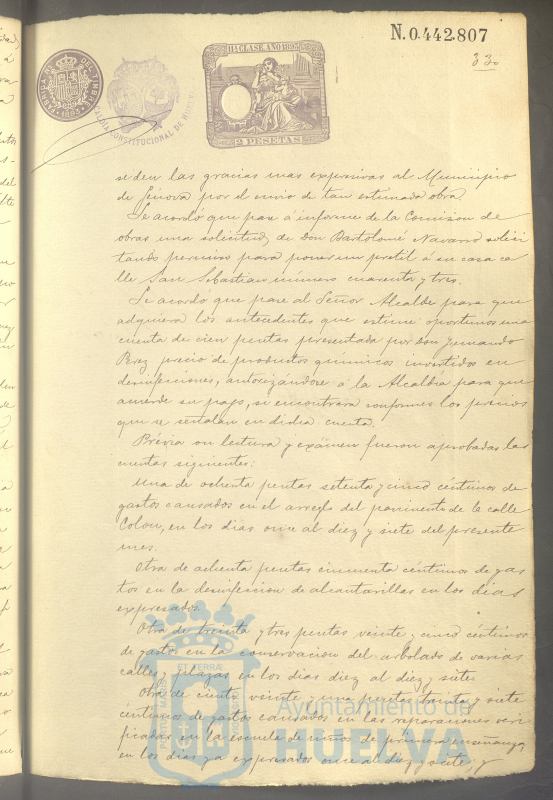 N.0.442.807
33
11ª CLASE AÑO 1895
2 PESETAS
FABRICA NAL DEL TIMBRE
1895
ALCALDIA CONSTITUCIONAL DE HUELVA
se den las gracias mas expresivas al Municipio
de Génova por el envio de tan estimada obra
Se acordó que pase á informe de la Comision de
obras una solicitud de Don Bartolomé Navarro solici
tando permiso para poner un pretil á su casa ca
lle San Sebastian número cuarenta y tres.
Se acordó que pase al Señor Alcalde para que
adquiera los antecedentes que estime oportunos una
cuenta de cien pesetas presentada por Don Fernando
Perez precio de productos químicos invertidos en
desinfecciones, autorizándose á la Alcaldía para que
acuerde su pago, si encontrara conformes los precios
que se señalan en dicha cuenta.
Prévia su lectura y exámen fueron aprobadas las
cuentas siguientes:
Una de ochenta pesetas setenta y cinco céntimos de
gastos causados en el arreglo del pavimento de la calle
Colon, en los dias once al diez y siete del presente
mes.
Otra de ochenta pesetas cincuenta céntimos de gas
tos en la desinfeccion de alcantarillas en los dias
expresados.
Otra de treinta y tres pesetas veinte y cinco céntimos
de gastos en la conservacion del arbolado de varias
calles y plazas en los dias diez al diez y siete
Otra de ciento veinte y una pesetas treinta y siete
céntimos de gastos causados en las reparaciones veri
ficadas en la escuela de niños de primera enseñanza,
en los dias ya expresados once al diez y siete, y
Ayuntamiento de
HUELVA
PORTUS MARIS ET TERRÆ